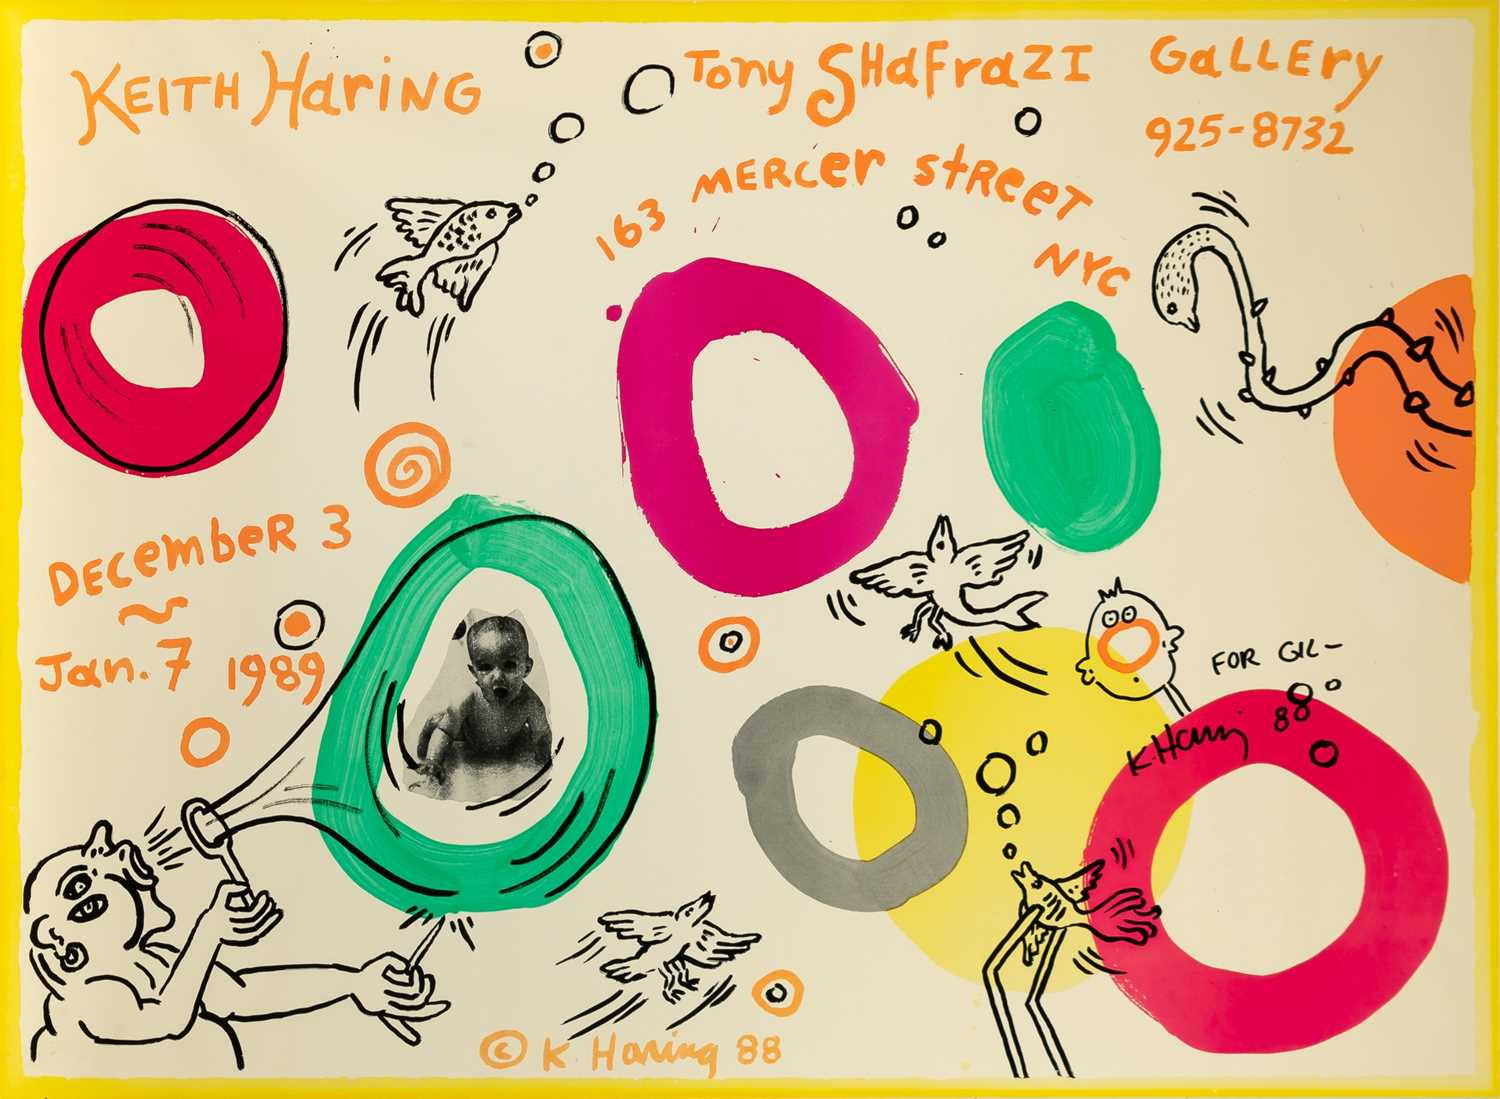 KEITH HarING
Tony SHaFraZI GaLLEry
925-8732
163 MERCer StReeT
NYC
DecembeR 3
~
Jan. 7 1989
FOR GIL-
K. Haring 88
© K. Haring 88